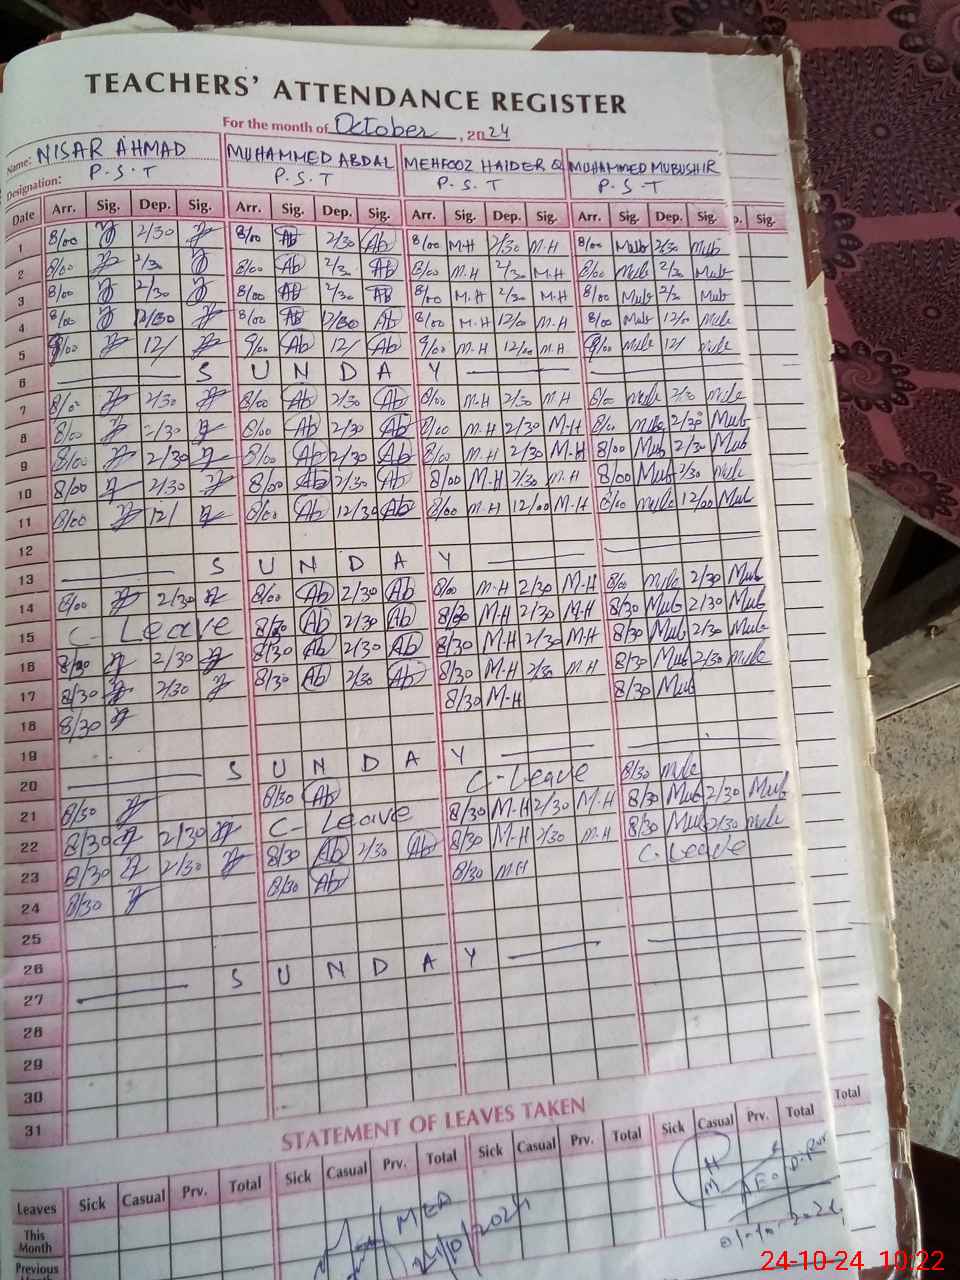 TEACHERS' ATTENDANCE REGISTER
For the month of October, 2024
Name: NISAR AHMAD MUHAMMED ABDAL MEHFOOZ HAIDER MUHAMMED MUBUSHIR
Designation: P.S.T P.S.T P.S.T P.S.T
Date Arr. Sig. Dep. Sig. Arr. Sig. Dep. Sig. Arr. Sig. Dep. Sig. Arr. Sig. Dep. Sig. Sig.
1 8/00 2/30 8/00 Ab 2/30 Ab 8/00 M.H 2/30 M.H 8/00 Mub 2/30 Mub
2 8/00 2/30 8/00 Ab 2/30 Ab 8/00 M.H 2/30 M.H 8/00 Mub 2/30 Mub
3 8/00 2/30 8/00 Ab 2/30 Ab 8/00 M.H 2/30 M.H 8/00 Mub 2/30 Mub
4 8/00 12/30 8/00 Ab 12/30 Ab 8/00 M.H 12/00 M.H 8/00 Mub 12/00 Mub
5 9/00 12/ 9/00 Ab 12/ Ab 9/00 M-H 12/00 M-H 9/00 Mub 12/
6 S U N D A Y
7 8/00 2/30 8/00 Ab 2/30 Ab 8/00 M-H 2/30 M-H 8/00 Mub 2/30 Mub
8 8/00 2/30 8/00 Ab 2/30 Ab 8/00 M-H 2/30 M-H 8/00 Mub 2/30 Mub
9 8/00 2/30 8/00 Ab 2/30 Ab 8/00 M-H 2/30 M-H 8/00 Mub 2/30 Mub
10 8/00 2/30 8/00 Ab 2/30 Ab 8/00 M-H 2/30 M-H 8/00 Mub 2/30 Mub
11 8/00 12/ 8/00 Ab 12/30 Ab 8/00 M-H 12/00 M-H 8/00 Mub 12/00 Mub
12
13 S U N D A Y
14 8/00 2/30 8/00 Ab 2/30 Ab 8/00 M-H 2/30 M-H 8/00 Mub 2/30 Mub
15 C-Leave 8/30 Ab 2/30 Ab 8/30 M-H 2/30 M-H 8/30 Mub 2/30 Mub
16 8/30 2/30 8/30 Ab 2/30 Ab 8/30 M-H 2/30 M-H 8/30 Mub 2/30 Mub
17 8/30 2/30 8/30 Ab 2/30 Ab 8/30 M-H 2/30 M-H 8/30 Mub 2/30 Mub
18 8/30 8/30 M-H 8/30 Mub
19
20 S U N D A Y
21 8/30 8/30 Ab C-Leave 8/30 Mub
22 8/30 2/30 C-Leave 8/30 M-H 2/30 M-H 8/30 Mub 2/30 Mub
23 8/30 2/30 8/30 Ab 2/30 Ab 8/30 M-H 2/30 M-H 8/30 Mub 2/30 Mub
24 8/30 8/30 Ab 8/30 M-H C-Leave
25
26
27 S U N D A Y
28
29
30
31
STATEMENT OF LEAVES TAKEN
Leaves Sick Casual Prv. Total Sick Casual Prv. Total Sick Casual Prv. Total Sick Casual Prv. Total Total
This Month
MEA
24/10/2024
AEO
01-10-2024
Previous Month
24-10-24 10:22